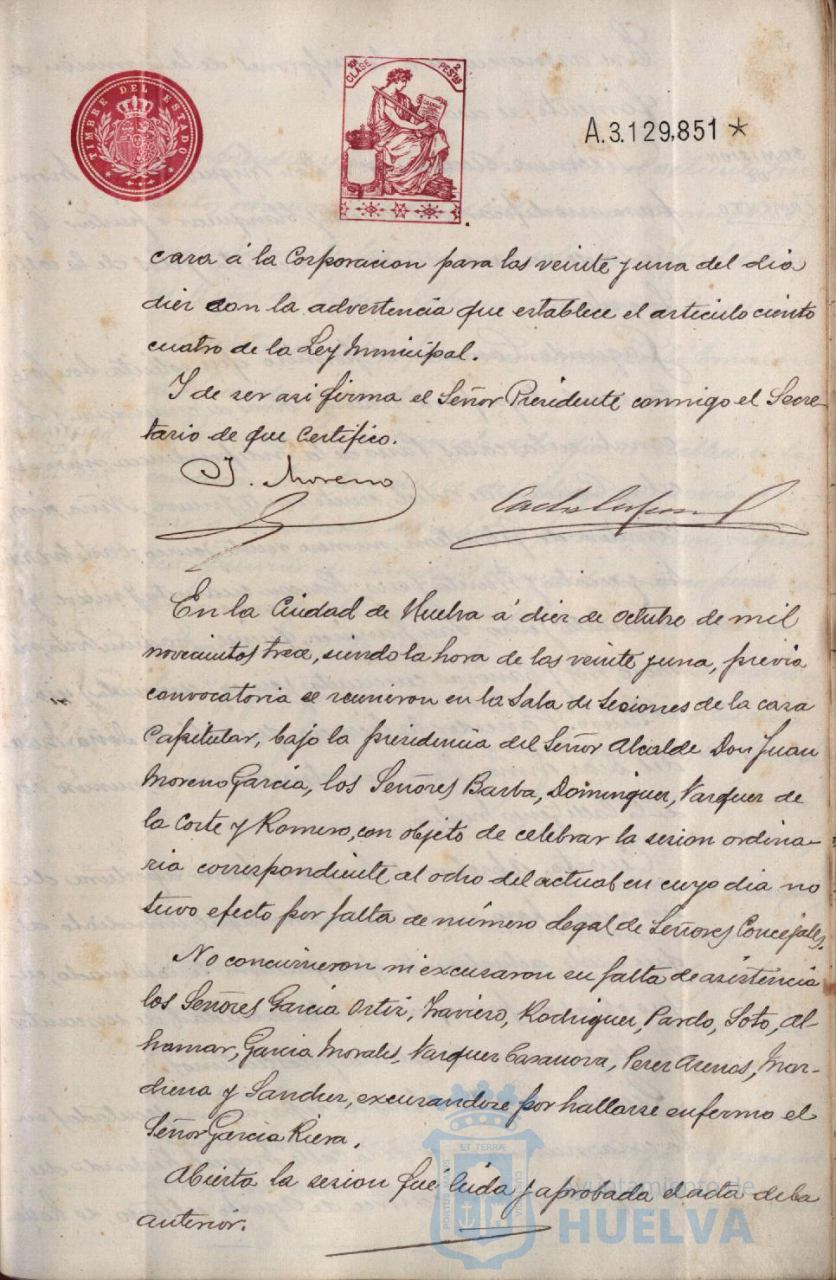 TIMBRE DEL ESTADO
10ª CLASE 2 PESTAS
A.3.129,851 *
cara á la Corporacion para las veinte y una del dia
diez con la advertencia que establece el articulo ciento
cuatro de la Ley Municipal.
Y de ser asi firma el Señor Presidente conmigo el Secre-
tario de que certifico.
J. Moreno
En la Ciudad de Huelva á diez de Octubre de mil
novecientos trece, siendo la hora de las veinte y una, previa
convocatoria se reunieron en la Sala de Sesiones de la casa
Capitular, bajo la presidencia del Señor Alcalde Don Juan
Moreno Garcia, los Señores Barba, Dominguez, Vazquez de
la Corte y Romero, con objeto de celebrar la sesion ordina-
ria correspondiente al ocho del actual en cuyo dia no
tuvo efecto por falta de número legal de Señores Concejales.
No concurrieron ni excusaron su falta de asistencia
los Señores Garcia Ortiz, Traviero, Rodriguez, Pardo, Soto, Al-
hamar, Garcia Morales, Vazquez Casanova, Perez Arenas, Mar-
chena y Sanchez, excusandose por hallarse enfermo el
Señor Garcia Riera.
Abierta la sesion fué leida y aprobada el acta de la
anterior.
Ayuntamiento de
HUELVA